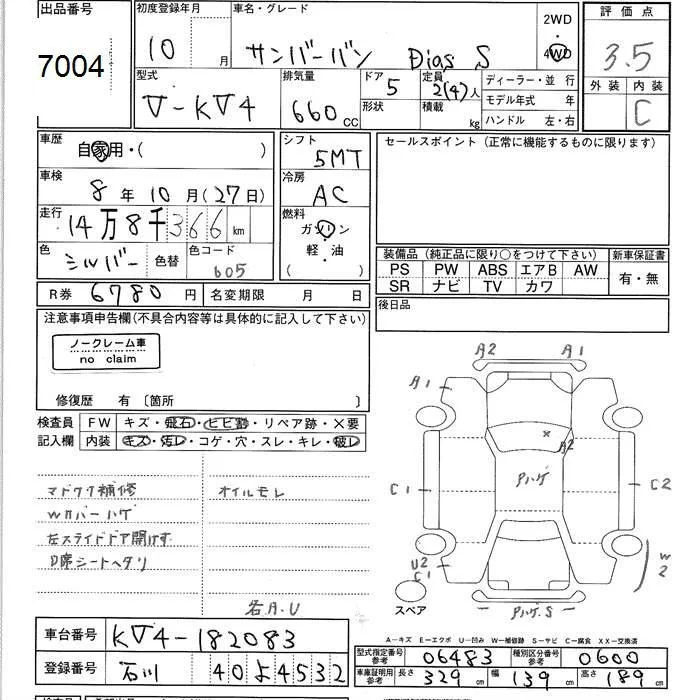 出品番号 初度登録年月 車名・グレード 2WD 評価点
7004 10 月 サンバーバン Dias S 4WD 3.5
型式 排気量 ドア 定員 ディーラー・並 行 外装 内装
V-KV4 660 CC 5 2(4)人 モデル年式 年 C
形状 積載 kg ハンドル 左・右
車歴 自家用・( ) シフト 5MT セールスポイント (正常に機能するものに限ります)
車検 8 年 10 月 (27日) 冷房 AC
走行 14万8千366 km 燃料 ガソリン
色 シルバー 色替 色コード 605 軽・油
( )
装備品 (純正品に限り○をつけて下さい) 新車保証書
PS PW ABS エアB AW 有・無
SR ナビ TV カワ
R券 6780 円 名変期限 月 日 後日品
注意事項申告欄(不具合内容等は具体的に記入して下さい)
ノークレーム車
no claim
修復歴 有 〔箇所 〕
検査員 FW キズ・飛石・ヒビ割・リペア跡・×要
記入欄 内装 キズ・汚レ・コゲ・穴・スレ・キレ・破レ
マドワク補修 オイルモレ
Wカバーハゲ
左スライドドア開けず
D席シートヘタリ
名A.U
A2 A1
A1
A2
Pハゲ
C1 C2
U2
C1
W
2
スペア
Pハゲ.S
A−キズ E−エクボ U−凹み W−補修跡 S−サビ C−腐食 XX−交換済
車台番号 KV4-182083
型式指定番号 参考 06483 種別区分番号 参考 0600
登録番号 石川 40よ4532
車庫証明用 参考 長さ 329 cm 幅 139 cm 高さ 189 cm